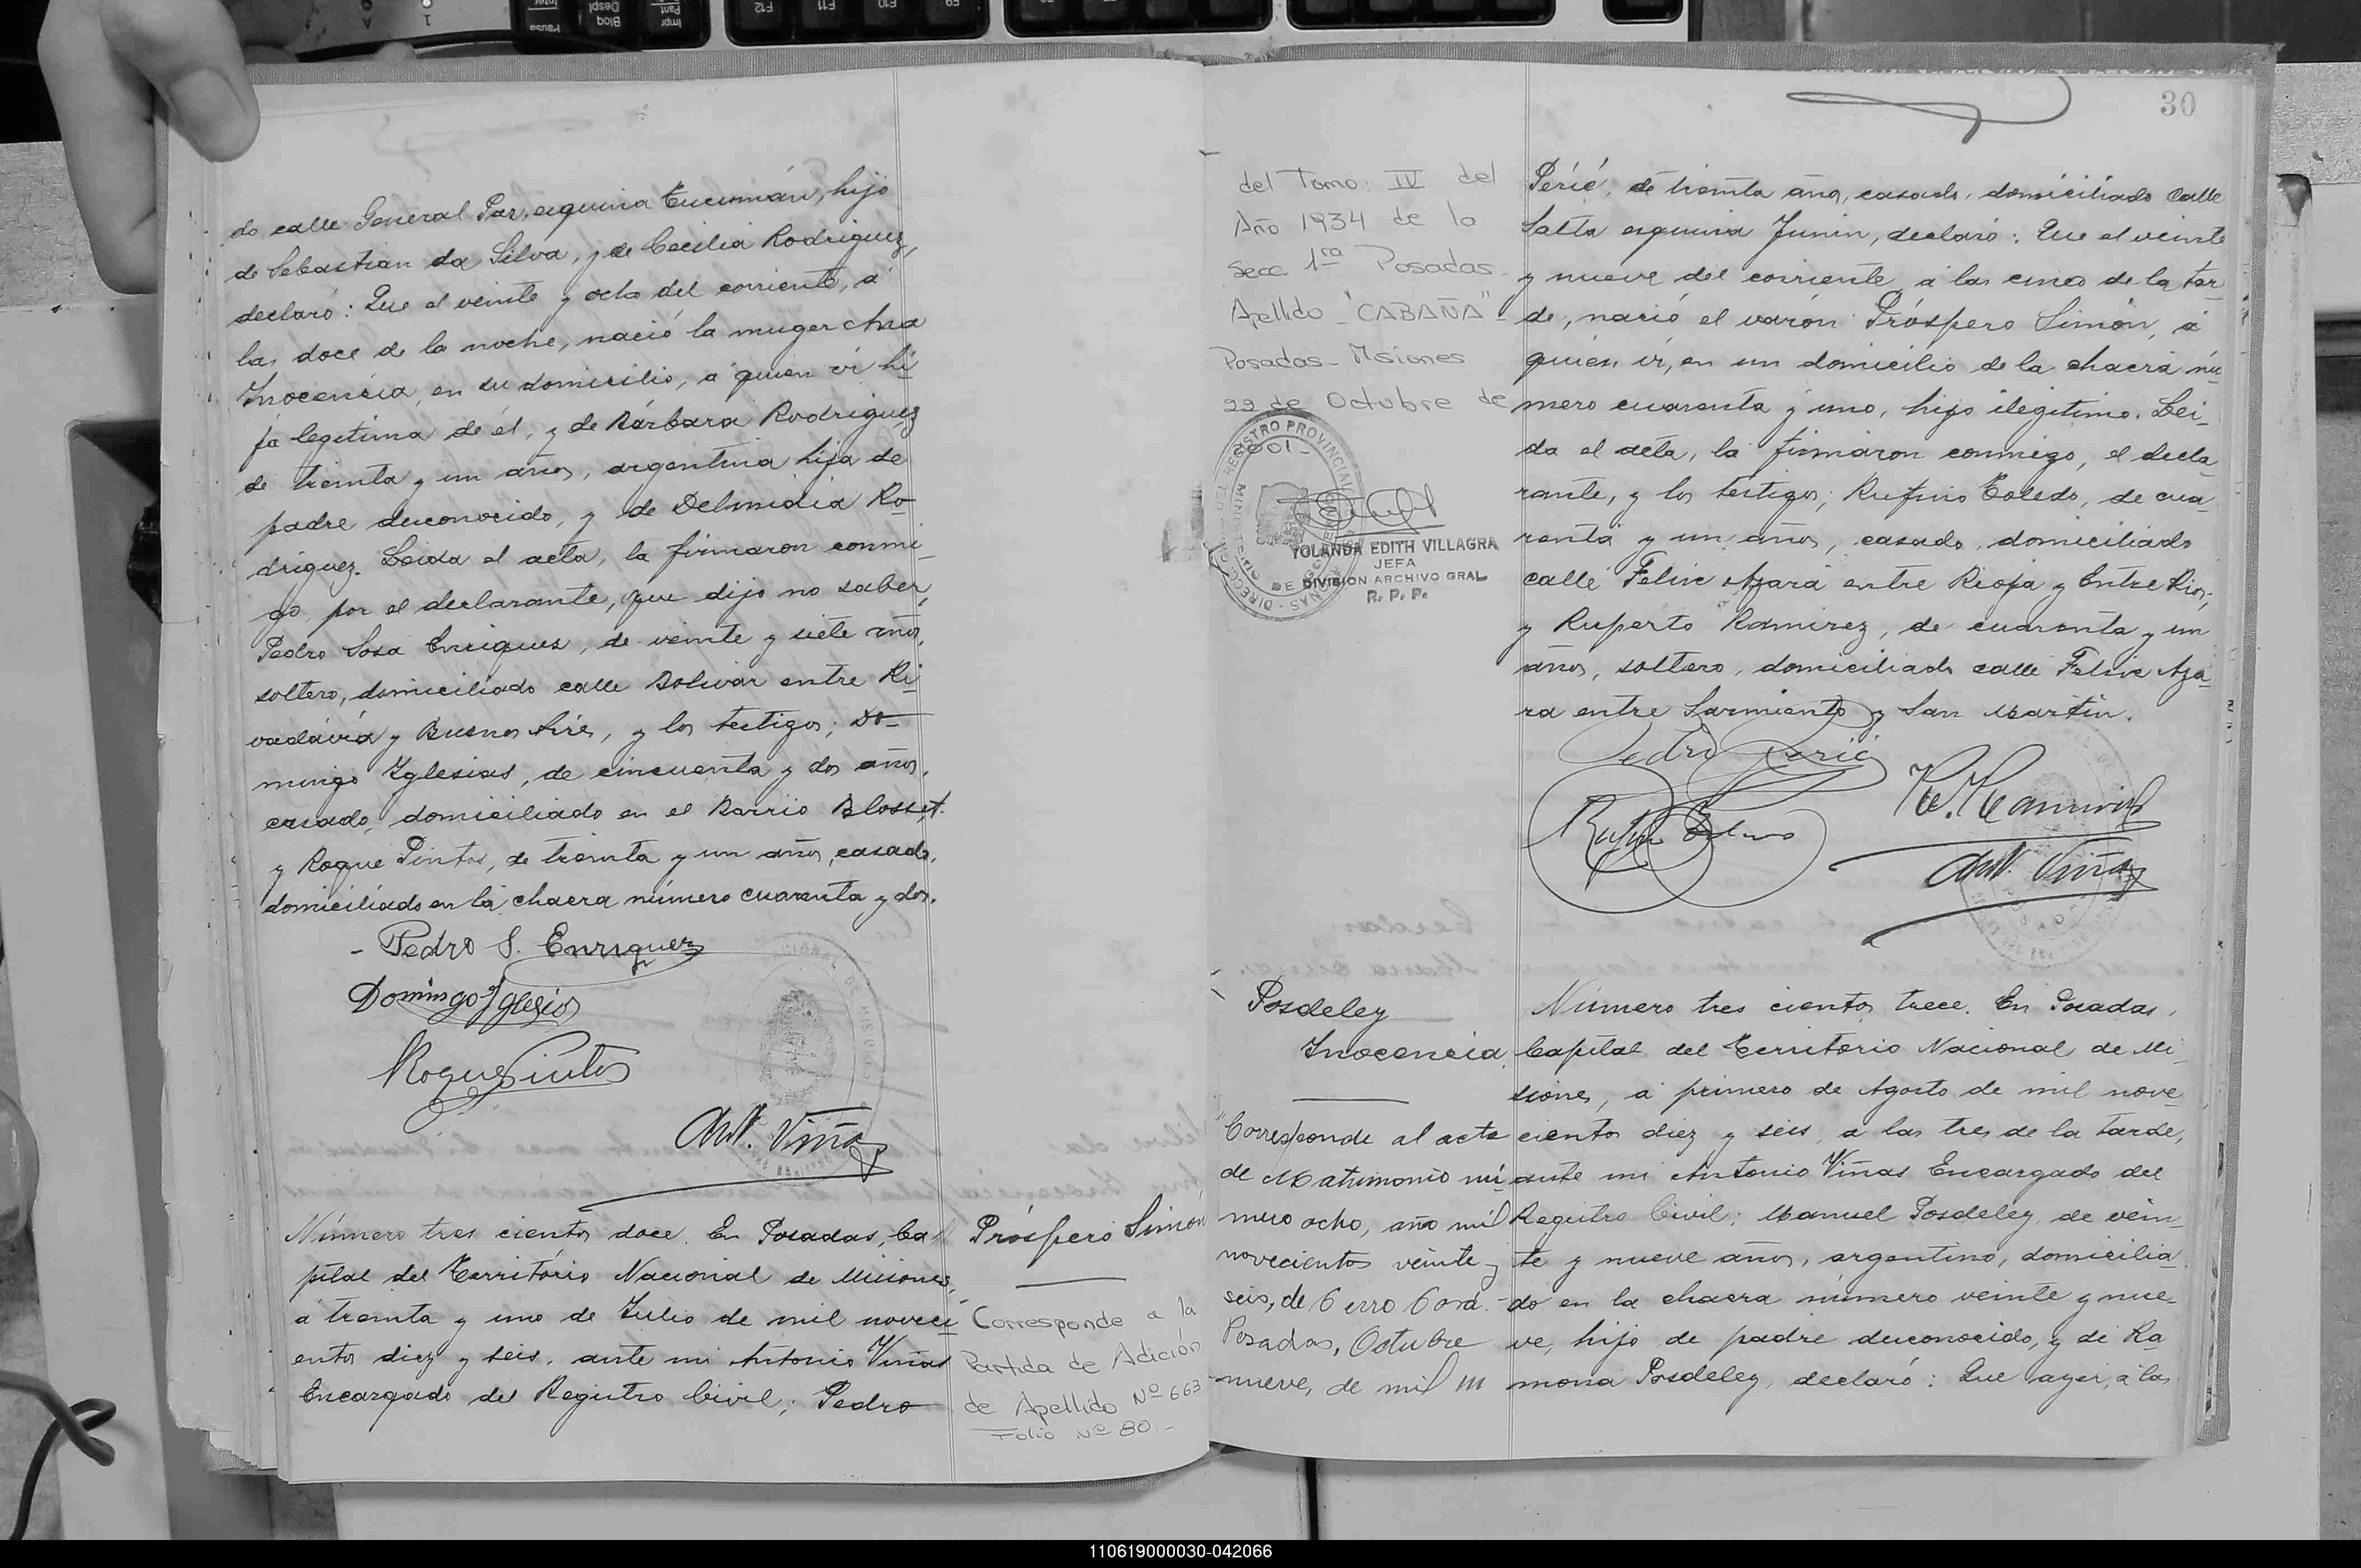 do calle General Paz, esquina Tucumán, hijo
de Sebastian da Silva, y de Cecilia Rodriguez,
declaró: Que el veinte y ocho del corriente, á
las doce de la noche, nació la muger
Inocencia, en su domicilio, á quien ví hi-
ja legitima de él, y de Bárbara Rodriguez
de treinta y un años, argentina hija de
padre desconocido, y de Delmidia Ro-
driguez. Leida el acta, la firmaron conmi-
go por el declarante, que dijo no saber,
Pedro Sosa Enriquez, de veinte y siete años,
soltero, domiciliado calle Bolivar entre Ri-
vadávia y Buenos Aires, y los testigos; Do-
mingo Yglesias, de cincuenta y dos años,
casado, domiciliado en el Barrio Blosset.
y Roque Pintos, de treinta y un años, casado,
domiciliado en la chacra número cuarenta y dos.
- Pedro S. Enriquez
Domingo Yglesias
Roque Pintos
Ant. Viñas
Número tres cientos doce. En Posadas, Ca-
pital del Território Nacional de Misiones,
á treinta y uno de Julio de mil noveci-
entos diez y seis, ante mi Antonio Viñas
Encargado del Registro Civil; Pedro
Próspero Simón
Corresponde a la
Partida de Adición
de Apellido Nº 663
Folio Nº 80.-
30
del Tomo: IV del
Año 1934 de la
Secc 1ra Posadas
Apellido - "CABAÑA" -
Posadas - Misiones
22 de Octubre de
2001-
YOLANDA EDITH VILLAGRA
JEFA
DIVISION ARCHIVO GRAL
R. P. P.
Périé, de treinta años, casado, domiciliado calle
Salta esquina Junin, declaró: Que el veinte
y nueve del corriente á las cinco de la tar-
de, nació el varón Próspero Simón, á
quien ví, en un domicilio de la chacra nú-
mero cuarenta y uno, hijo ilegitimo. Lei-
da el acta, la firmaron conmigo, el decla-
rante, y los testigos; Rufino Toledo, de cua-
renta y un años, casado, domiciliado
calle Felix Azara entre Rioja y Entre Rios,
y Ruperto Ramirez, de cuarenta y un
años, soltero, domiciliado calle Felix Aza-
ra entre Sarmiento y San Martin.
Pedro Perié
R. Ramirez
Rufino Toledo
Ant. Viñas
Posdeley
Inocencia
Corresponde al acta
de Matrimonio nú-
mero ocho, año mil
novecientos veinte y
seis, de Cerro Corá.-
Posadas, Octubre
nueve, de mil
Número tres cientos trece. En Posadas,
Capital del Territorio Nacional de Mi-
siones, á primero de Agosto de mil nove-
cientos diez y seis, a las tres de la tarde,
ante mi Antonio Viñas Encargado del
Registro Civil; Manuel Posdeley, de vein-
te y nueve años, argentino, domicilia-
do en la chacra número veinte y nue-
ve, hijo de padre desconocido, y de Ra-
mona Posdeley, declaró: Que ayer, á las
110619000030-042066